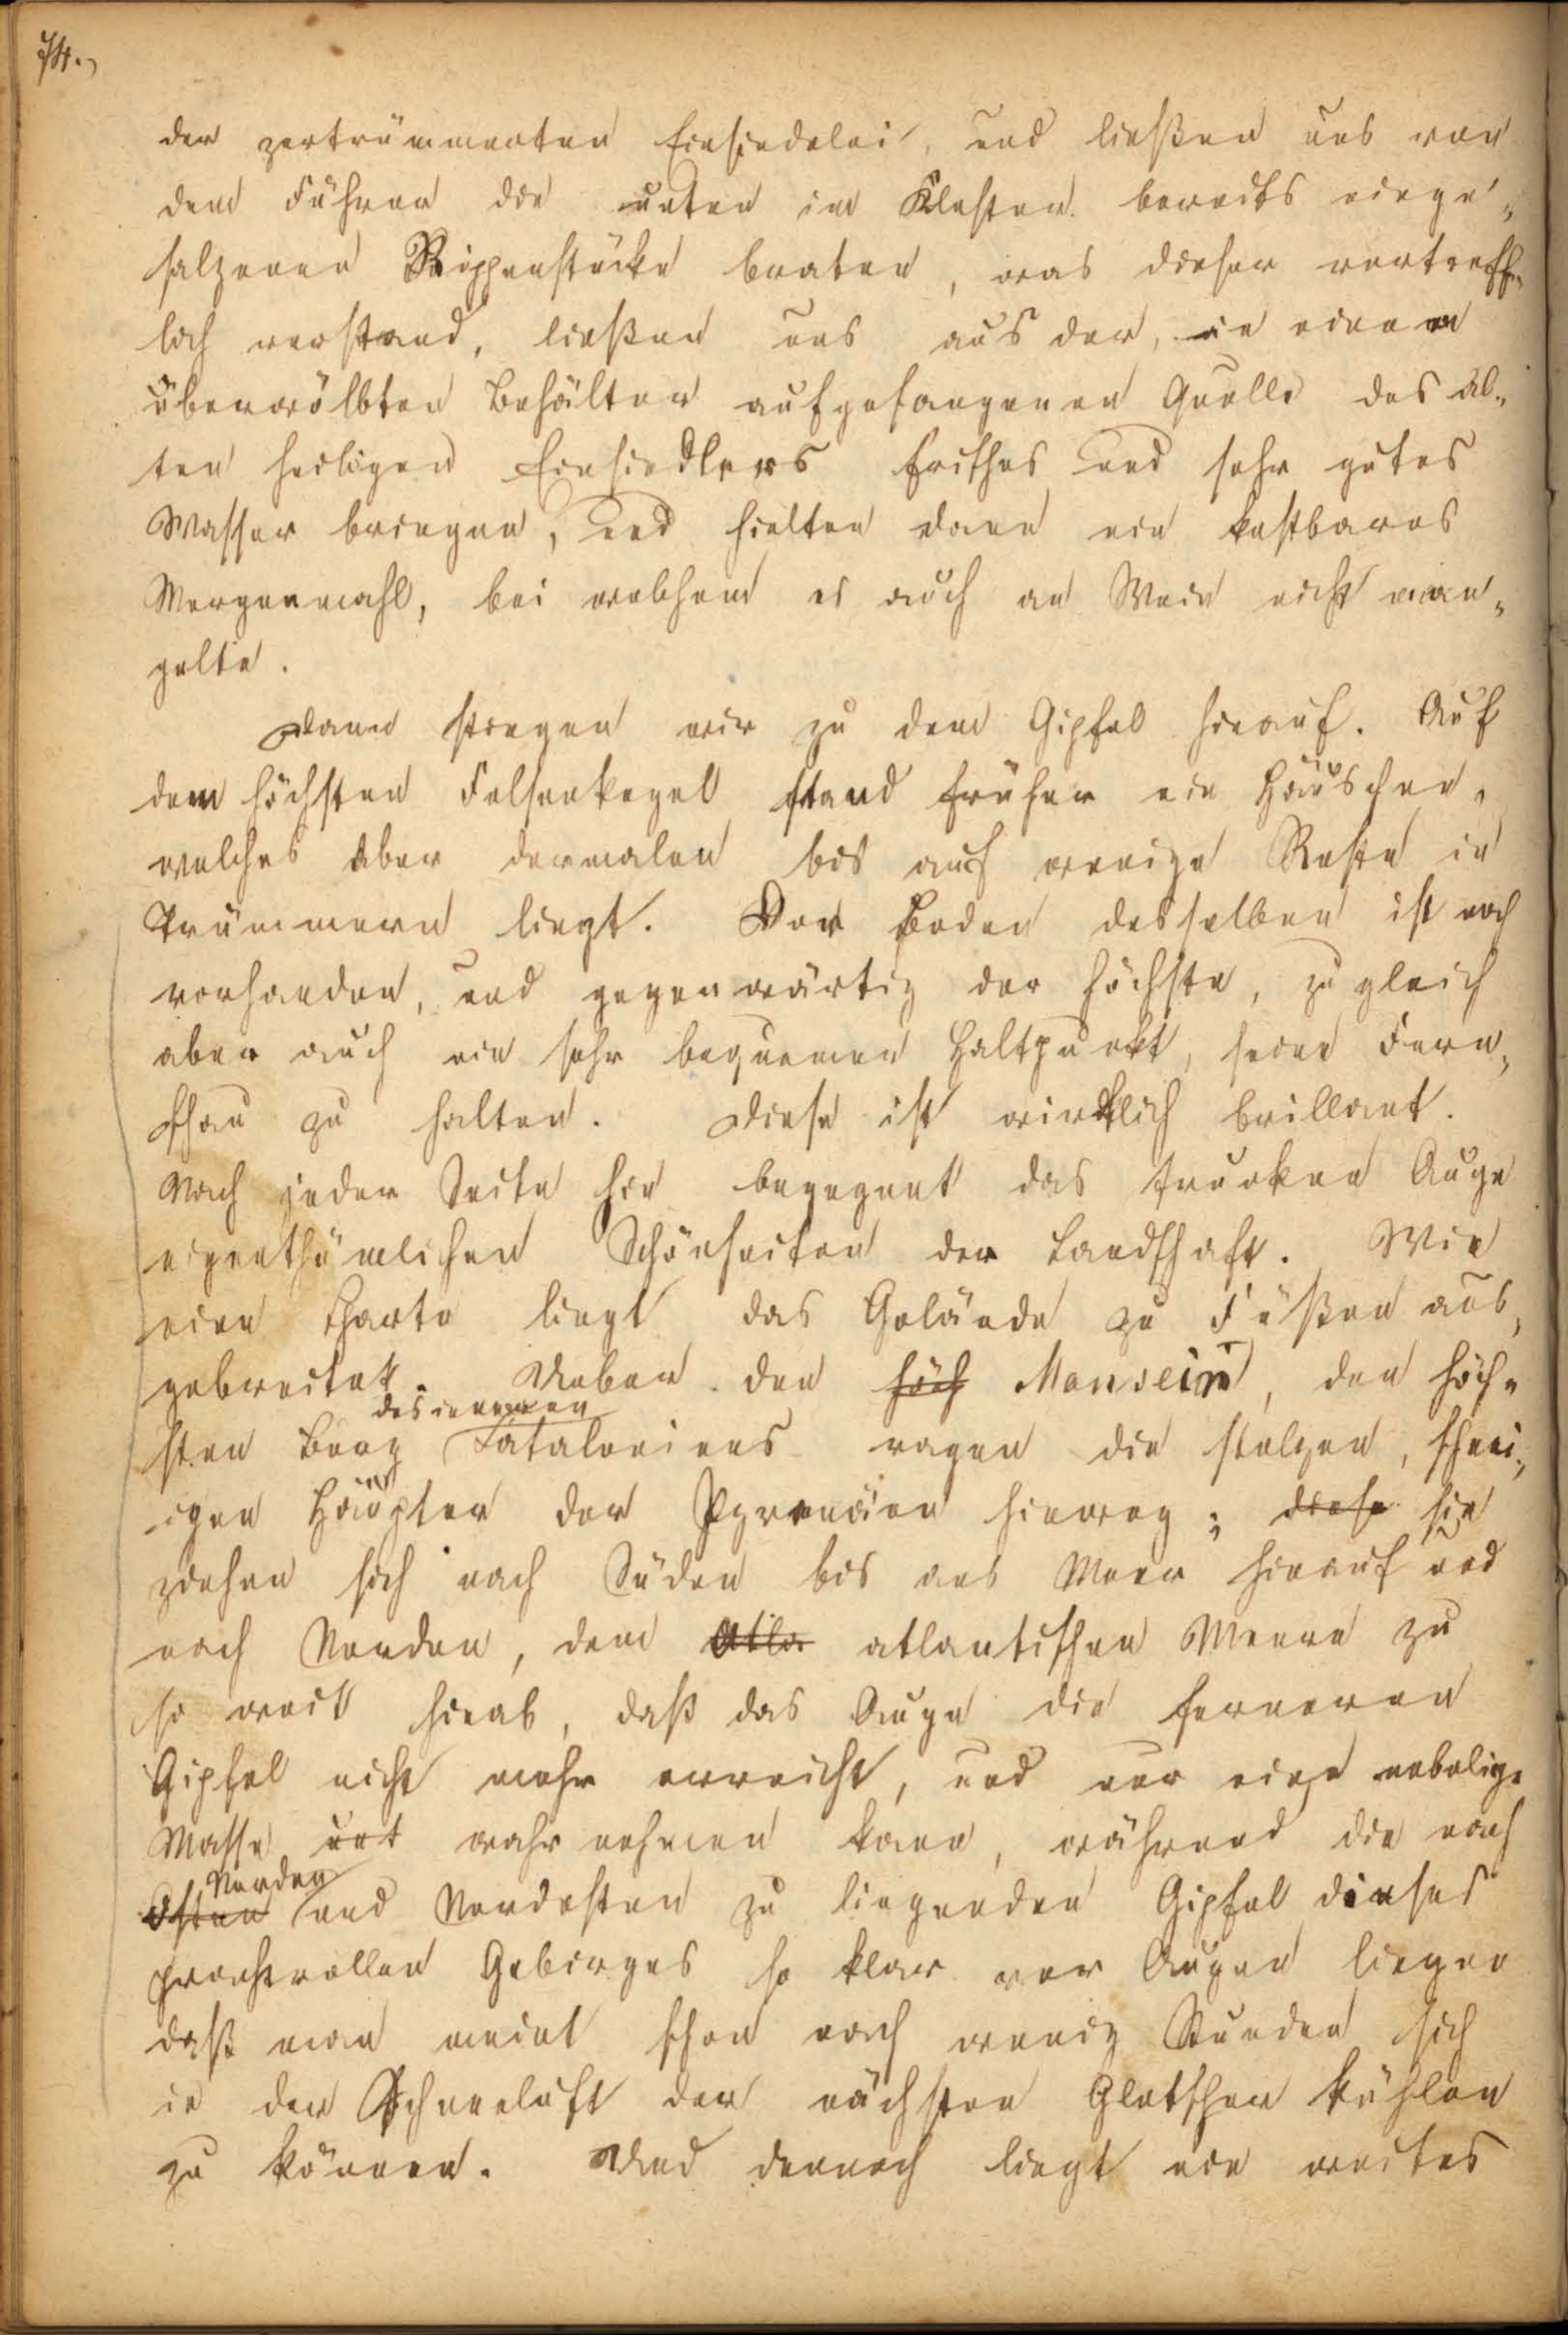 74.
der zertrümmerten Einsiedelei, und ließen uns von
dem Führer die unten im Kloster bereits einge„
salzenen Rippenstücke braten, was dieser vortreff„
lich verstand, ließen uns aus der, in einem
überwölbten Behälter aufgefangenen Quelle des al„
ten heiligen Einsiedlers frisches und sehr gutes
Wasser bringen, und hielten dann ein kostbares
Morgenmahl, bei welchem es auch an Wein nicht man„
gelte.
Dann stiegen wir zu dem Gipfel hinauf. Auf
dem höchsten Felsenkegel stand früher ein Häuschen,
welches aber dermalen bis auf wenige Reste in
Trümmern liegt. Der Boden desselben ist noch
vorhanden, und gegenwärtig der höchste, zugleich
aber auch ein sehr bequemer Haltpunkt, seine Fern„
schau zu halten. Diese ist wirklich brillant.
Nach jeder Seite hin begegnet das trunkene Auge
eigenthümlichen Schönheiten der Landschaft. Wie
eine Charte liegt das Gelände zu Füßen aus„
gebreitet. Ueber den höch Monsein, den höch„
des inneren
sten Berg Cataloniens ragen die stolzen, schnei„
igen Häupter der Pyrenäen hinweg; diese sie
ziehen sich nach Süden bis ans Meer hinauf und
nach Norden, dem Atla atlantischen Meere zu
so weit hinab, daß das Auge die ferneren
Gipfel nicht mehr erreicht, und nur eine nebelige
Masse unt wahrnehmen kann, während die nach
Norden
Osten und Nordosten zu liegenden Gipfel dieses
prachtvollen Gebirges so klar vor Augen liegen
daß man meint schon nach wenig Stunden sich
in der Schneeluft der nächsten Gletscher kühlen
zu können. Und dennoch liegt ein weites